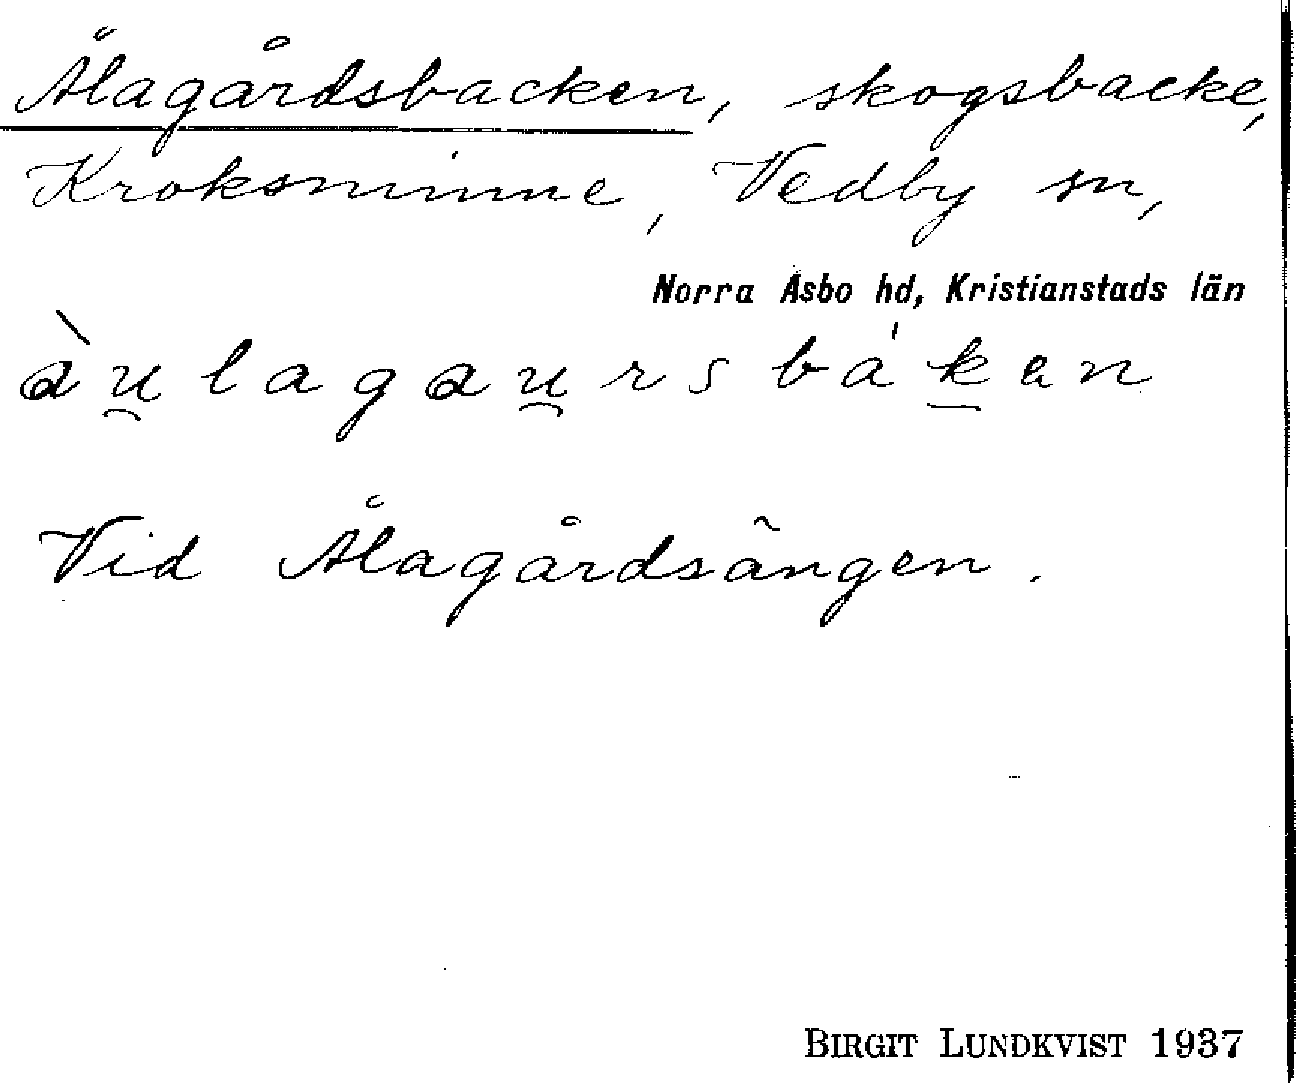 Ålagårdsbacken, skogsbacke,
Kroksminne, Vedby sn,
Norra Åsbo hd, Kristianstads län
ɑ̀u̯lagɑu̯rsbák̠ən
Vid Ålagårdsängen.
BIRGIT LUNDKVIST 1937